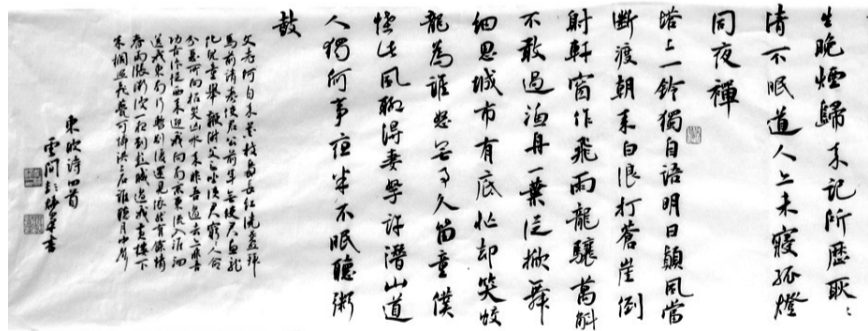 生晚煙歸來記所歷耿〻
清不眠道人亦未寢孤燈
同夜禪
塔上一鈴獨自語明日顛風當
斷渡朝來白浪打蒼崖倒
射軒窗作飛雨龍驤萬斛
不敢過漁舟一葉從掀舞
細思城市有底忙却笑蛟
龍為誰怒無事久留童僕
怪此風聊得妻孥許潛山道
人獨何事夜半不眠聽粥
鼓
父老何自來花枝裊長紅洗盞拜
馬前請壽使君公前年無使君魚鱉
化兒童舉鞭謝父老正坐使君窮窮人命
分惡所向招災凶水來非吾過去亦非吾
功古汴從西來迎我向南京東流入淮泗
送我東南行暫別還復見依然有餘情
春雨漲微波一夜到彭城過我黃樓下
朱欄照飛甍可憐洪上石誰聽月中聲
東坡詩四首
雲間 書